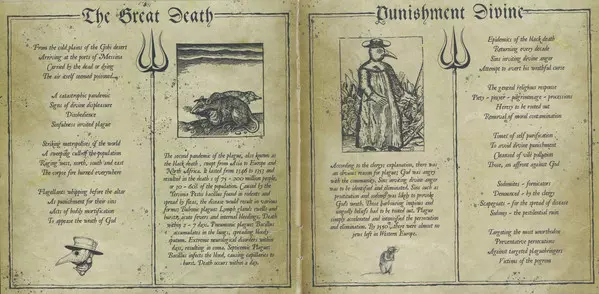 The Great Death
From the cold plains of the Gobi desert
Arriving at the ports of Messina
Carried by the dead or dying
The air itself seemed poisoned
A catastrophic pandemic
Signs of divine displeasure
Disobedience
Sinfulness erected plague
Striking metropolises of the world
A creeping cull of the population
Raging west, north, south and east
The corpses lure everywhere
Flagellants whipping before the altar
As punishment for their sins
Acts of bodily mortification
To appease the wrath of God
The second pandemic of the plague, also known as
the black death, swept from Asia to Europe and
North Africa. It lasted from 1346 to 1353 and
resulted in the death of 75 - 200 million people,
or 30 - 60% of the population. Caused by the
Yersinia Pestis bacillus found in rodents and
spread by fleas, the disease would result in various
forms: Bubonic plague: Lymph glands swells and
bursts, acute fevers and internal bleedings. Death
within 2 - 7 days. Pneumonic plague: Bacillus
accumulates in the lungs, spreading bloody
sputum. Extreme neurological disorders within
days, resulting in coma. Septicemic Plague:
Bacillus infects the blood, causing capillaries to
burst. Death occurs within a day.
Punishment Divine
According to the clergys explanation, there was
an obvious reason for plague; God was angry
with the community. Sins inviting divine anger
was to be identified and eliminated. Sins such as
prostitution and sodomy was likely to provoke
God's wrath. Those harbouring impious and
ungodly beliefs had to be rooted out. Plague
simply accelerated and intensified the persecution
and elimination. By 1550 there were almost no
jews left in Western Europe.
Epidemics of the black death
Returning every decade
Sins inviting divine anger
Attempt to avert his wrathful curse
The general religious response
Piety - prayer - pilgrimage - processions
Heresy to be rooted out
Removal of moral contamination
Times of self purification
To avoid divine punishment
Cleansed of vile pollution
Those, an affront against God
Sodomites - fornicators
Denounced - by the clergy
Scapegoats - for the spread of disease
Sodomy - the pestilential ruin
Targeting the most unorthodox
Preventative persecutions
Against targeted plaguebringers
Victims of the pogrom